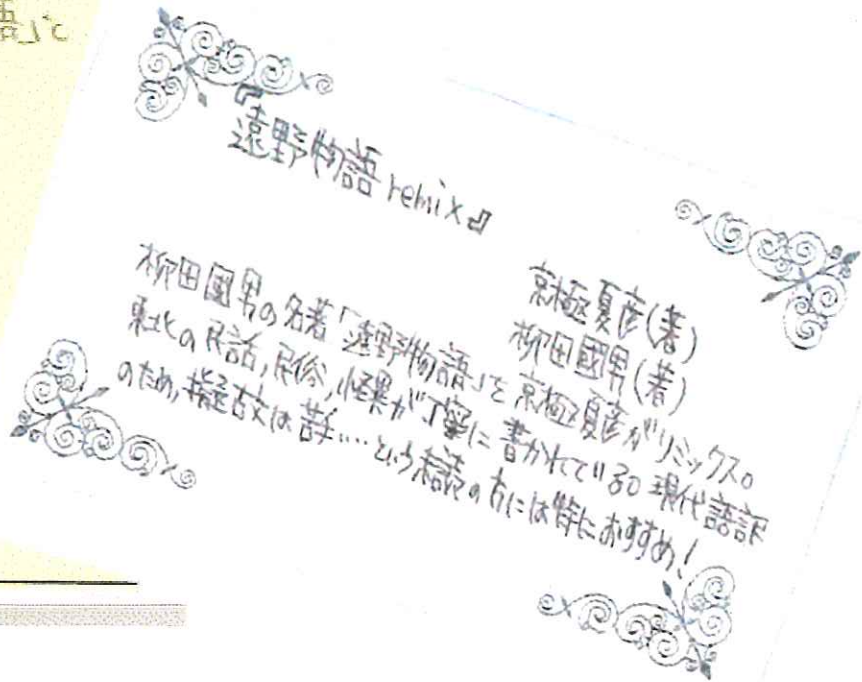 語」と
『遠野物語remix』
京極夏彦(著)
柳田國男(著)
柳田國男の名著「遠野物語」を京極夏彦がリミックス。
東北の民話,民俗,怪異が丁寧に書かれている。現代語訳
のため,擬古文は苦手....という読の方には特におすすめ!